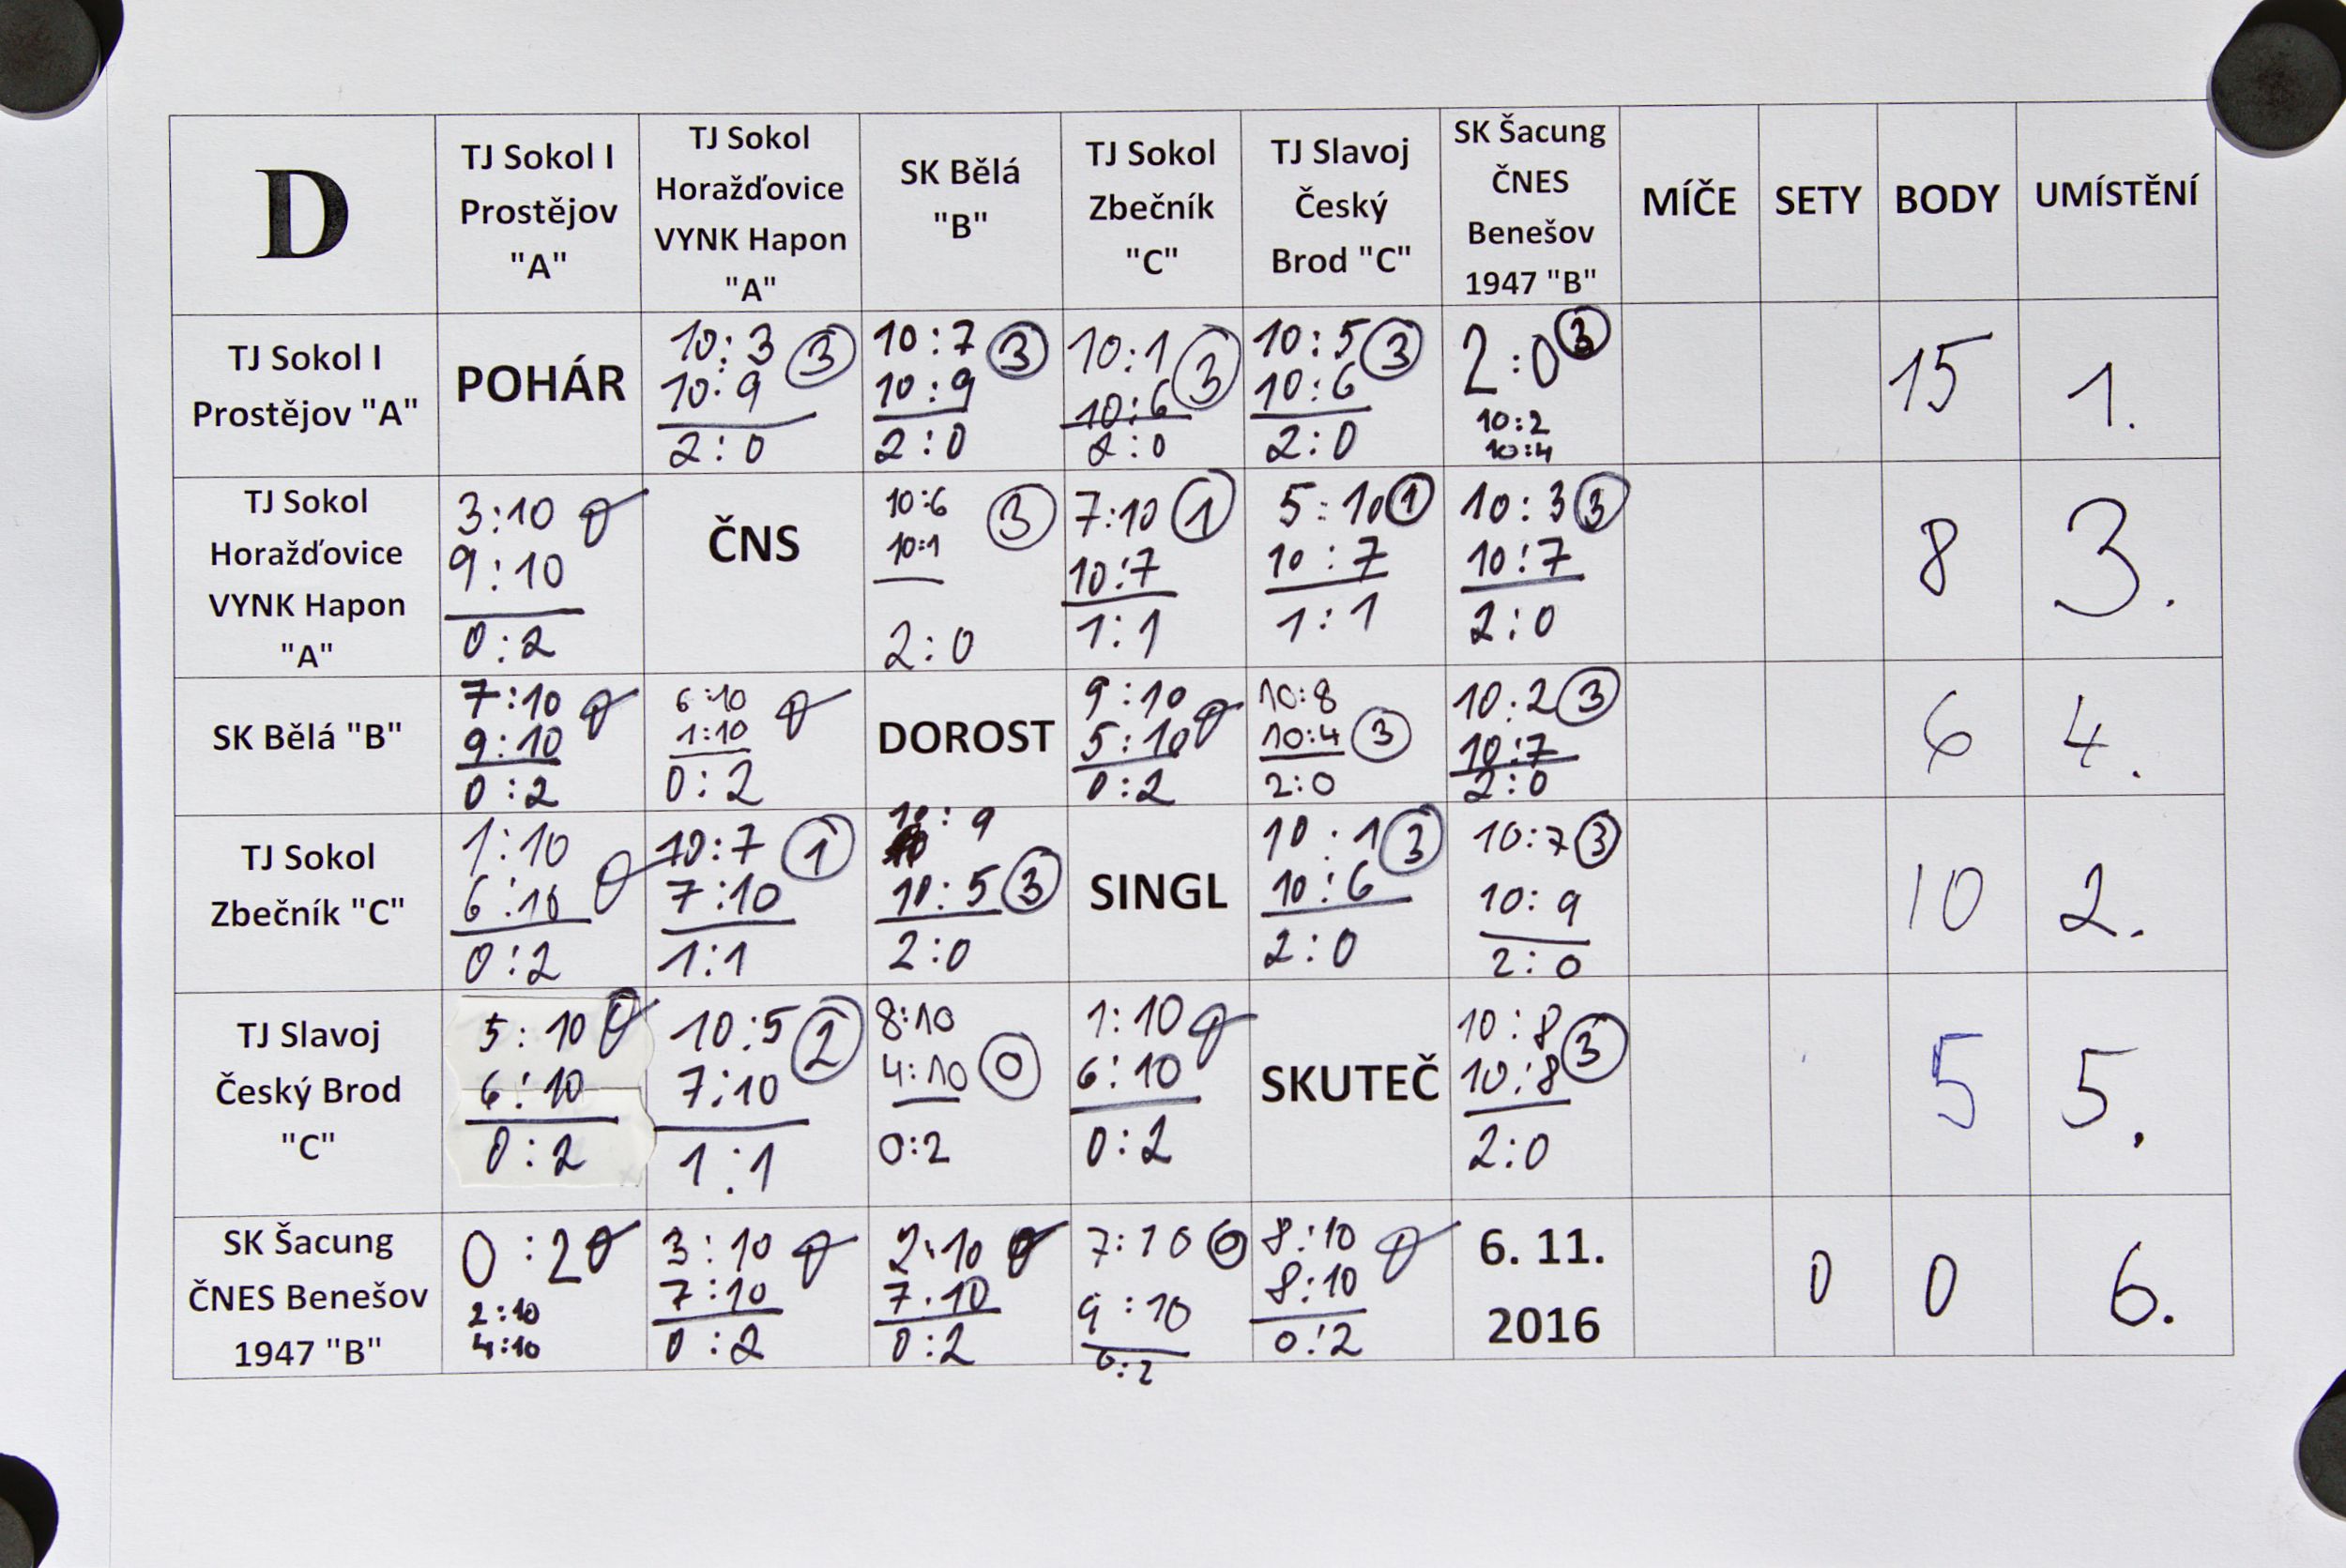 D
TJ Sokol I
Prostějov
"A"
TJ Sokol
Horažďovice
VYNK Hapon
"A"
SK Bělá
"B"
TJ Sokol
Zbečník
"C"
TJ Slavoj
Český
Brod "C"
SK Šacung
ČNES
Benešov
1947 "B"
MÍČE
SETY
BODY
UMÍSTĚNÍ
TJ Sokol I
Prostějov "A"
POHÁR
10:3 3
10:9
2:0
10:7 3
10:9
2:0
10:1 3
10:6
2:0
10:5 3
10:6
2:0
2:0 3
10:2
10:4
15
1.
TJ Sokol
Horažďovice
VYNK Hapon
"A"
3:10 0
9:10
0:2
ČNS
10:6 3
10:1
2:0
7:10 1
10:7
1:1
5:10 1
10:7
1:1
10:3 3
10:7
2:0
8
3.
SK Bělá "B"
7:10 0
9:10
0:2
6:10 0
1:10
0:2
DOROST
9:10
5:10 0
0:2
10:8
10:4 3
2:0
10:2 3
10:7
2:0
6
4.
TJ Sokol
Zbečník "C"
1:10
6:10 0
0:2
10:7 1
7:10
1:1
10:9
10:5 3
2:0
SINGL
10:1 3
10:6
2:0
10:7 3
10:9
2:0
10
2.
TJ Slavoj
Český Brod
"C"
5:10 0
6:10
0:2
10:5 2
7:10
1:1
8:10
4:10 0
0:2
1:10 0
6:10
0:2
SKUTEČ
10:8
10:8 3
2:0
5
5.
SK Šacung
ČNES Benešov
1947 "B"
0:2 0
2:10
4:10
3:10 0
7:10
0:2
2:10 0
7:10
0:2
7:10 0
9:10
0:2
8:10 0
8:10
0:2
6. 11.
2016
0
0
6.